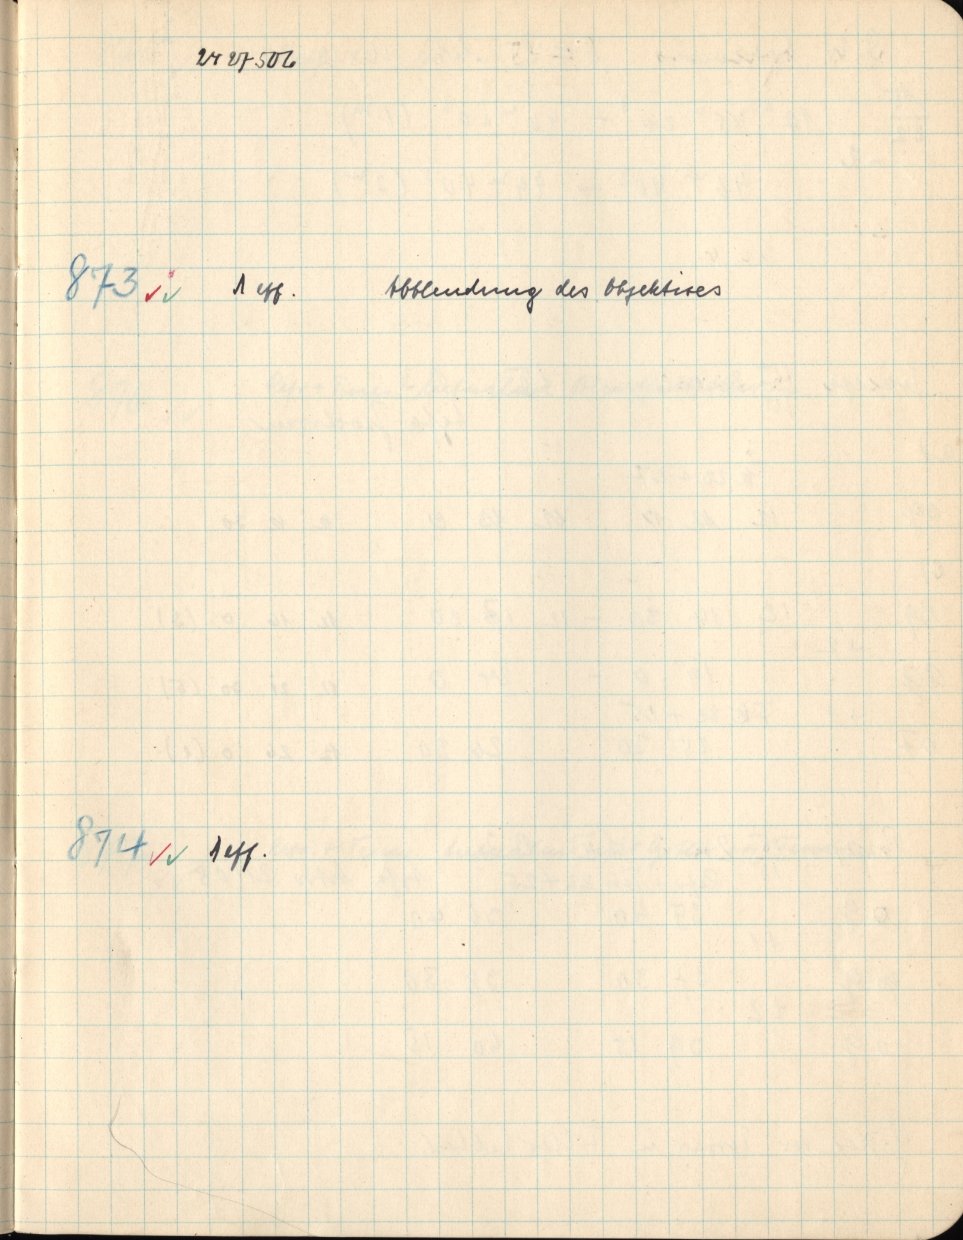 2427506
873 ✓✓ λ eff. Abblendung des Objektives
874 ✓✓ λ eff.